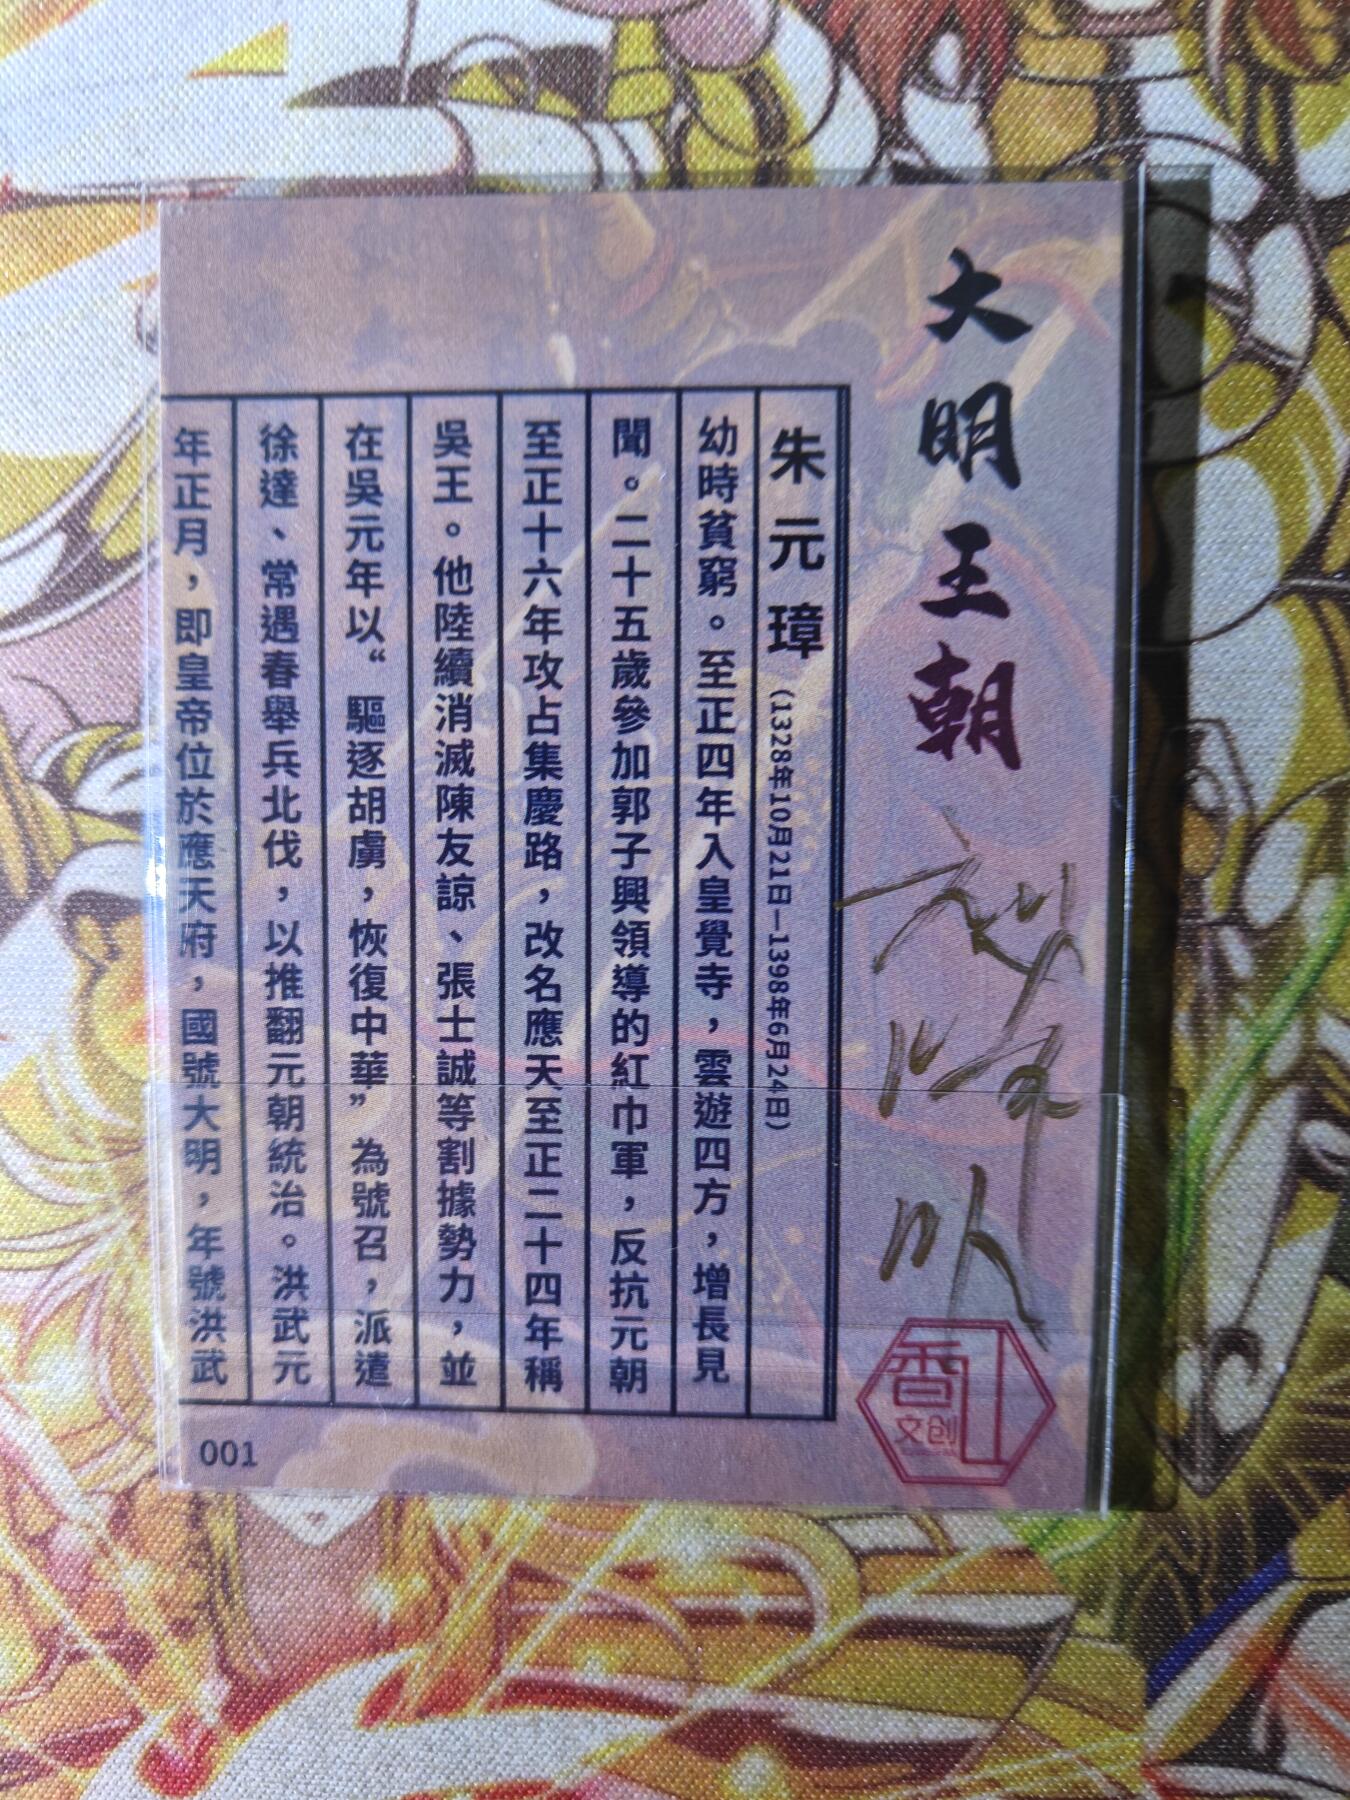 大明王朝
朱元璋（1328年10月21日—1398年6月24日）
幼時貧窮。至正四年入皇覺寺，雲遊四方，增長見
聞。二十五歲參加郭子興領導的紅巾軍，反抗元朝
至正十六年攻占集慶路，改名應天至正二十四年稱
吳王。他陸續消滅陳友諒、張士誠等割據勢力，並
在吳元年以“驅逐胡虜，恢復中華”為號召，派遣
徐達、常遇春舉兵北伐，以推翻元朝統治。洪武元
年正月，即皇帝位於應天府，國號大明，年號洪武
001
文创